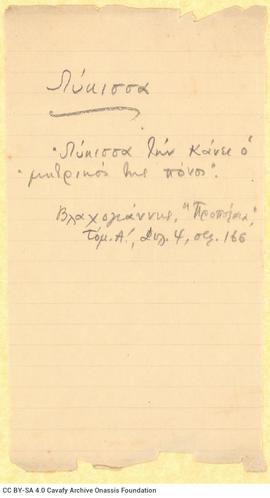 Λύκισσα
"Λύκισσα την κάνει ο
"μητρικός της πόνος".
Βλαχογιάννης, "Προπύλαια",
Τόμ. Α', Φυλ. 4, σελ. 166
CC BY-SA 4.0 Cavafy Archive Onassis Foundation